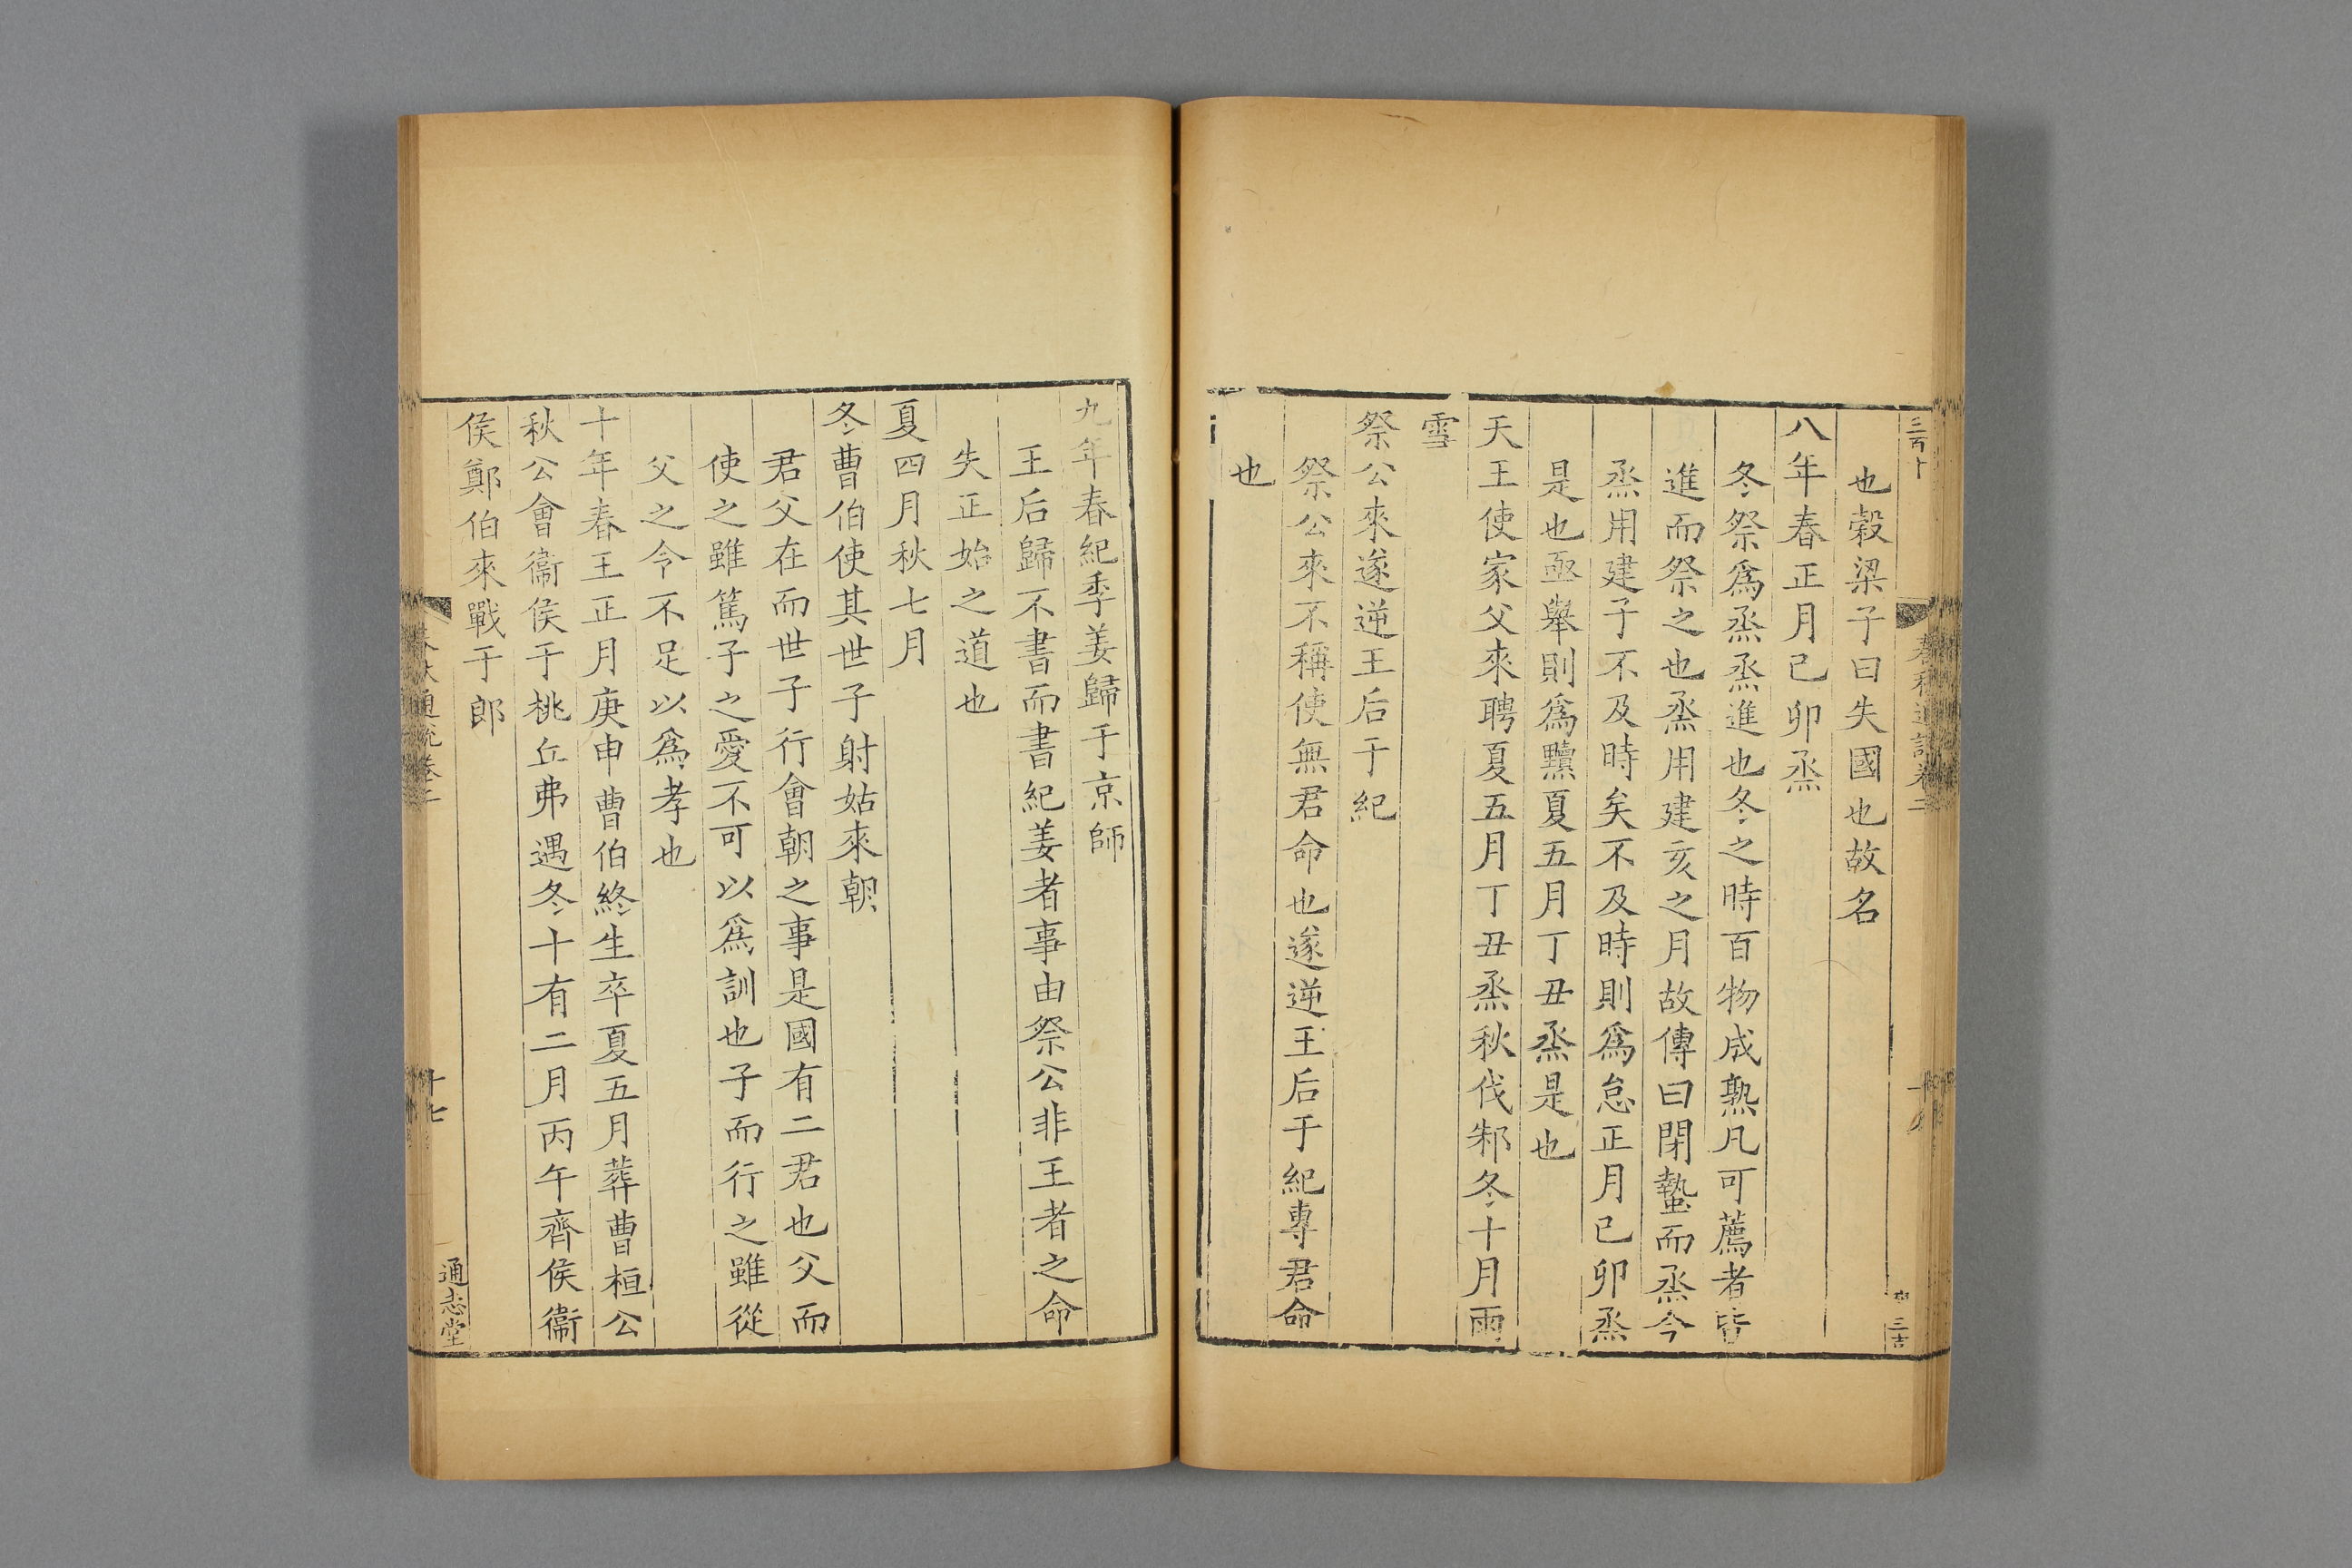 三百十
也榖梁子曰失國也故名
八年春正月己卯烝
冬祭爲烝烝進也冬之時百物成熟凡可薦者皆
進而祭之也烝用建亥之月故傳曰閉蟄而烝今
烝用建子不及時矣不及時則爲怠正月己卯烝
是也亟舉則爲黷夏五月丁丑烝是也
天王使家父來聘夏五月丁丑烝秋伐邾冬十月雨
雪
祭公來遂逆王后于紀
祭公來不稱使無君命也遂逆王后于紀專君命
也
九年春紀季姜歸于京師
王后歸不書而書紀姜者事由祭公非王者之命
失正始之道也
夏四月秋七月
冬曹伯使其世子射姑來朝
君父在而世子行會朝之事是國有二君也父而
使之雖篤子之愛不可以爲訓也子而行之雖從
父之令不足以爲孝也
十年春王正月庚申曹伯終生卒夏五月葬曹桓公
秋公會衞侯于桃丘弗遇冬十有二月丙午齊侯衞
侯鄭伯來戰于郎
春秋通說卷二
十七
通志堂